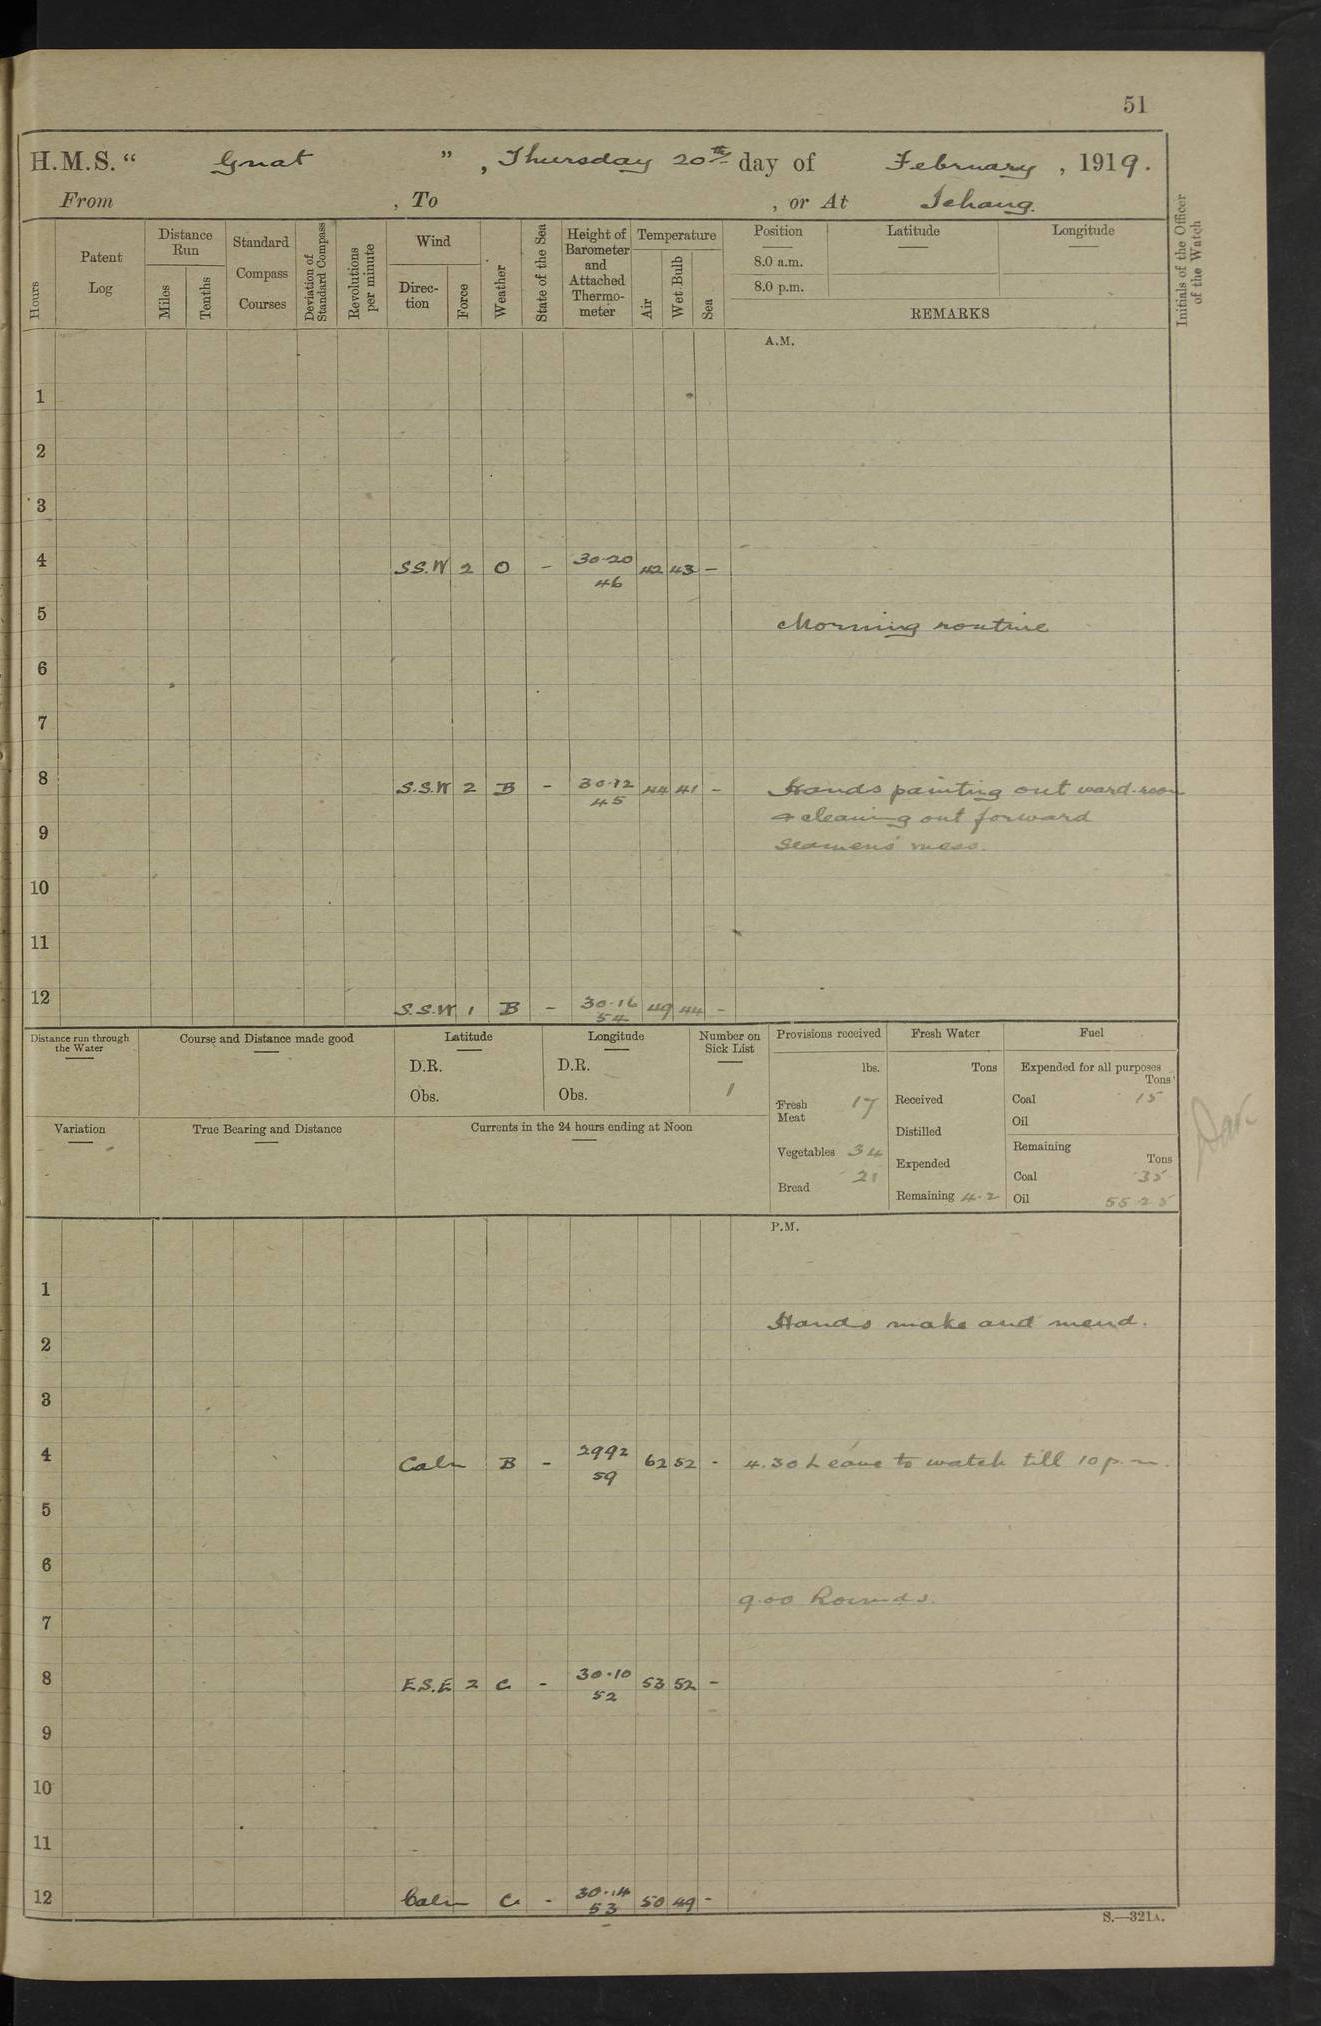 51
H.M.S. " Gnat " , Thursday 20th day of February , 1919.
From , To , or At Ichang.
Hours
Patent Log
Distance Run
Miles
Tenths
Standard Compass Courses
Deviation of Standard Compass
Revolutions per minute
Wind
Direction
Force
Weather
State of the Sea
Height of Barometer and Attached Thermometer
Temperature
Air
Wet Bulb
Sea
Position Latitude Longitude
8.0 a.m.
8.0 p.m.
REMARKS
Initials of the Officer of the Watch
A.M.
1
2
3
4 S.S.W 2 O - 30.20 42 43 -
46
5 Morning routine
6
7
8 S.S.W 2 B - 30.12 44 41 - Hands painting out ward-room
45
9 & cleaning out forward
Seamens' mess.
10
11
12 S.S.W 1 B - 30.16 49 44 -
54
Distance run through the Water
Course and Distance made good
Latitude
D.R.
Obs.
Longitude
D.R.
Obs.
Number on Sick List
1
Provisions received
lbs.
Fresh Meat 17
Vegetables 34
Bread 21
Fresh Water
Tons
Received
Distilled
Expended
Remaining 4.2
Fuel
Expended for all purposes
Tons
Coal .15
Oil
Remaining
Tons
Coal .35
Oil 55.25
Variation
True Bearing and Distance
Currents in the 24 hours ending at Noon
P.M.
1
Hands make and mend.
2
3
4 Calm B - 2992 62 52 - 4.30 Leave to watch till 10 p.m.
59
5
6
9.00 Rounds.
7
8 E.S.E 2 C - 30.10 53 52 -
52
9
10
11
12 Calm C - 30.14 50 49 -
53
S.—321A.